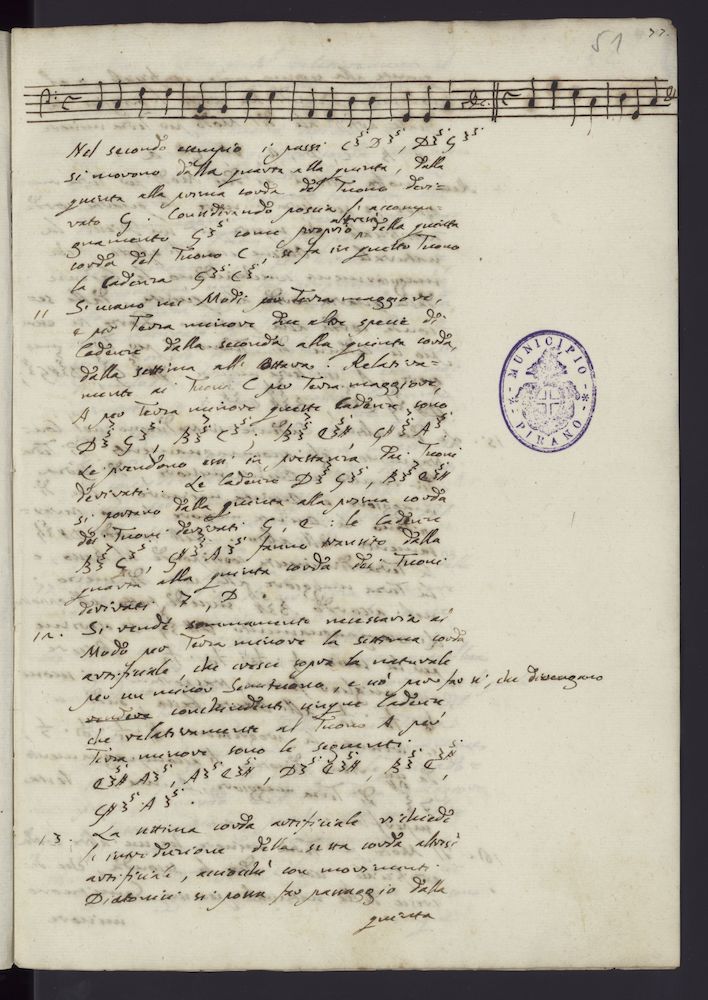 51
77.
Nel secondo esempio i passi C 3 5 D 3 5, D 3 5 G 3 5
si movono dalla quarta alla quinta, dalla
quinta alla prima corda del Tuono deri=
vato G. Considerando poscia l'accompa=
gnamento G 3 5 come proprio altresì della quinta
corda del Tuono C, si fa in questo Tuono
la Cadenza G 3 5 C 3 5.
11 Si usano nei Modi per Terza maggiore,
e per Terza minore due altre specie di
Cadenze dalla seconda alla quinta corda,
dalla settima all' ottava. Relativa=
mente ai Tuoni C per Terza maggiore,
A per Terza minore queste Cadenze sono
Le prendono essi in prestanza dai Tuoni
derivati. Le Cadenze
si portano dalla quinta alla prima corda
dei Tuoni derivati G, E: le Cadenze
fanno transito dalla
quarta alla quinta corda dei Tuoni
derivati F, D.
12. Si rende sommamente necessaria al
Modo per Terza minore la settima corda
artifiziale, che cresce sopra la naturale
per un minor Semituono, e ciò per far sì, che divengano
rendere conchiudenti cinque Cadenze
che relativamente al Tuono A per
Terza minore sono le seguenti.
13. La settima corda artifiziale richiede
l'introduzione della sesta corda altresì
artifiziale, acciocchè con movimenti
Diatonici si possa far passaggio dalla
quinta
MUNICIPIO
PIRANO